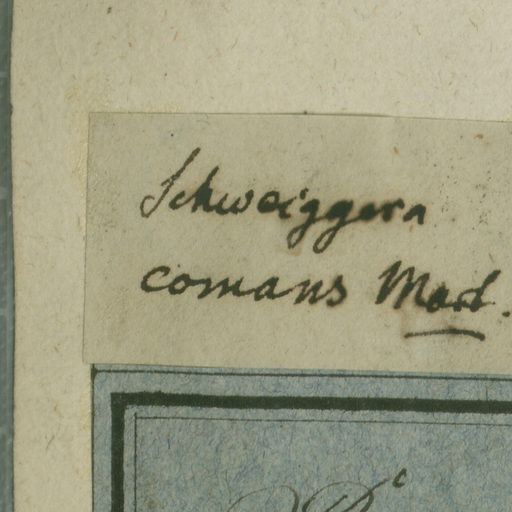 Schweiggera
comans Mart.